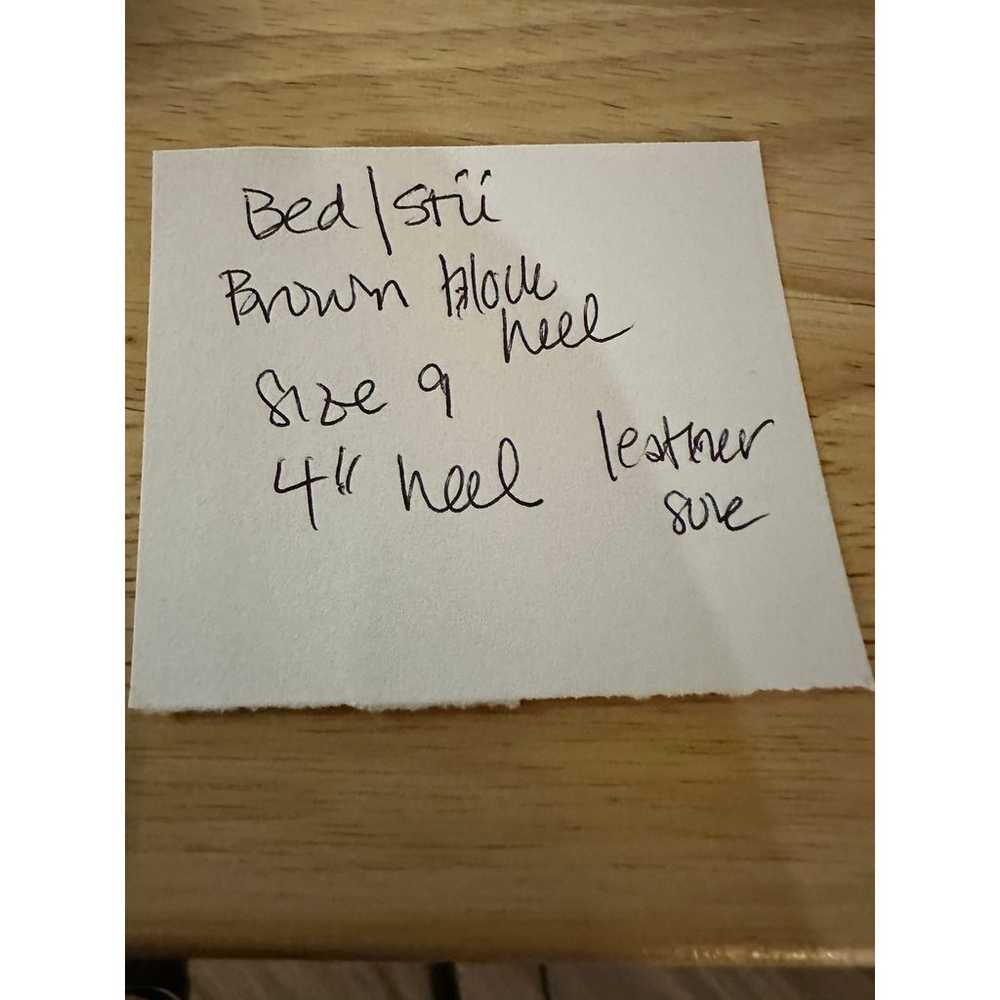 Bed|Stü
Brown block
heel
Size 9
4" heel leather
sole